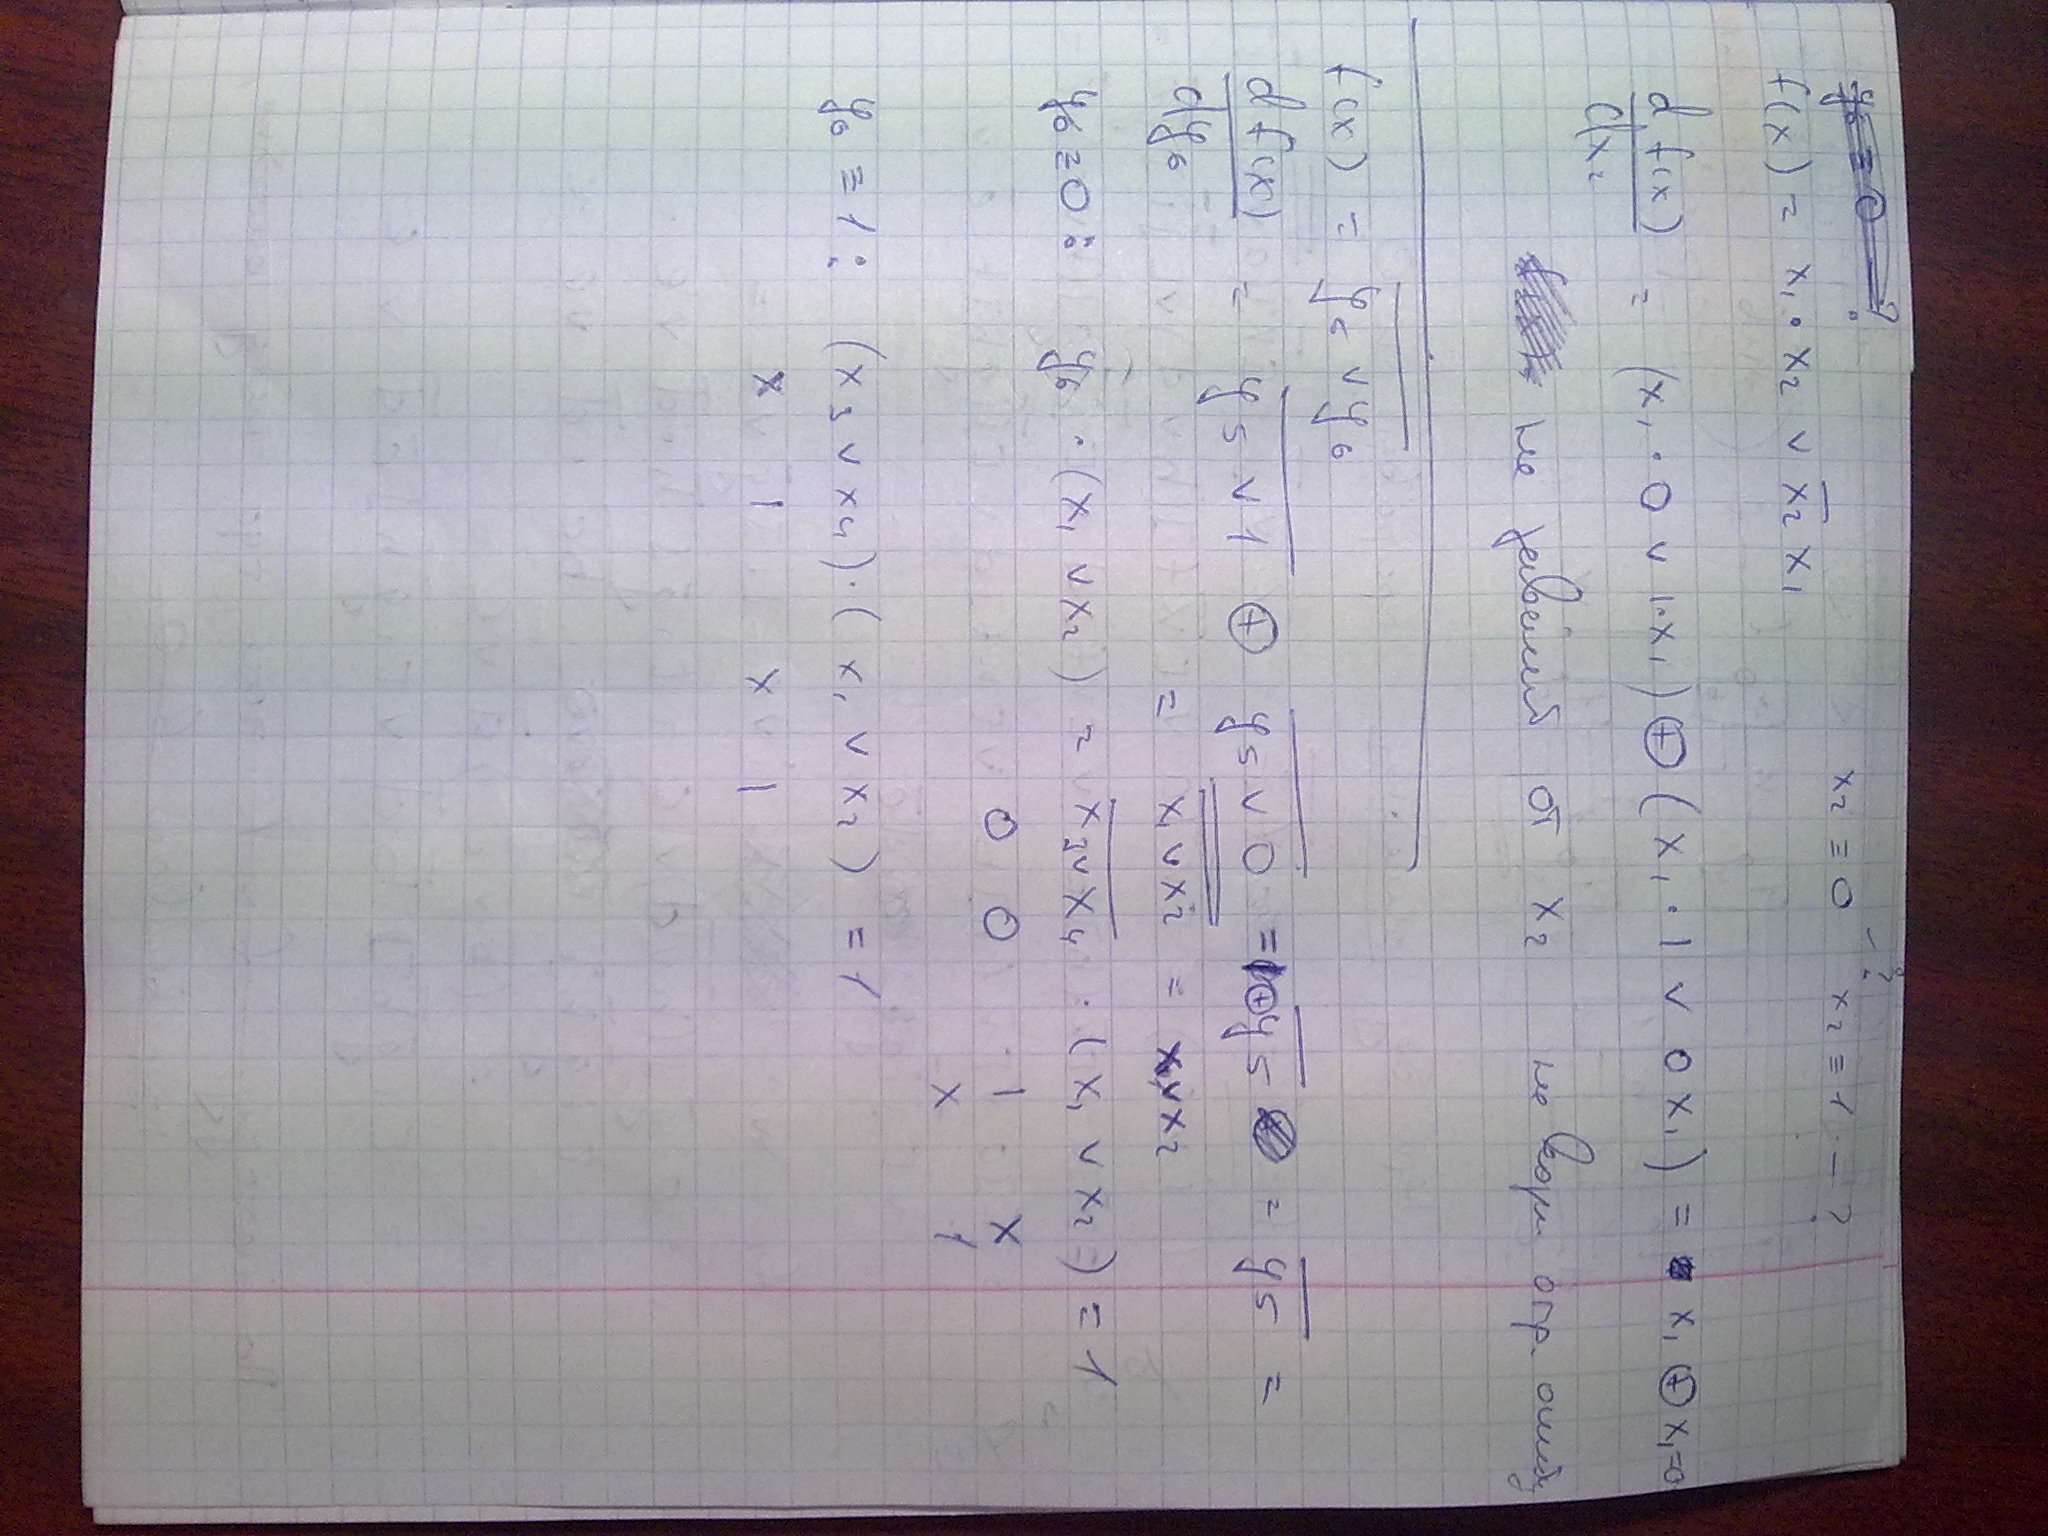 x₂ ≡ 0 - ? x₂ ≡ 1 - ?
f(x) = x₁ · x₂ ∨ x̅₂ x₁
d f(x) / dx₂ = (x₁ · 0 ∨ 1·x₁) ⊕ (x₁ · 1 ∨ 0 x₁) = x₁ ⊕ x₁=0
не зависит от x₂ не возм опр. ошибку
f(x) = \overline{y₅ ∨ y₆}
d f(x) / dy₆ = \overline{y₅ ∨ 1} ⊕ \overline{y₅ ∨ 0} = ⊕ \overline{y₅} = \overline{y₅} =
= \overline{\overline{x₁ ∨ x₂}} = x₁ ∨ x₂
y₆ ≡ 0: y₆ · (x₁ ∨ x₂) = \overline{x₃ ∨ x₄} · (x₁ ∨ x₂) = 1
0 0 1 x
x 1
y₆ ≡ 1: (x₃ ∨ x₄) · (x₁ ∨ x₂) = 1
x 1 x 1